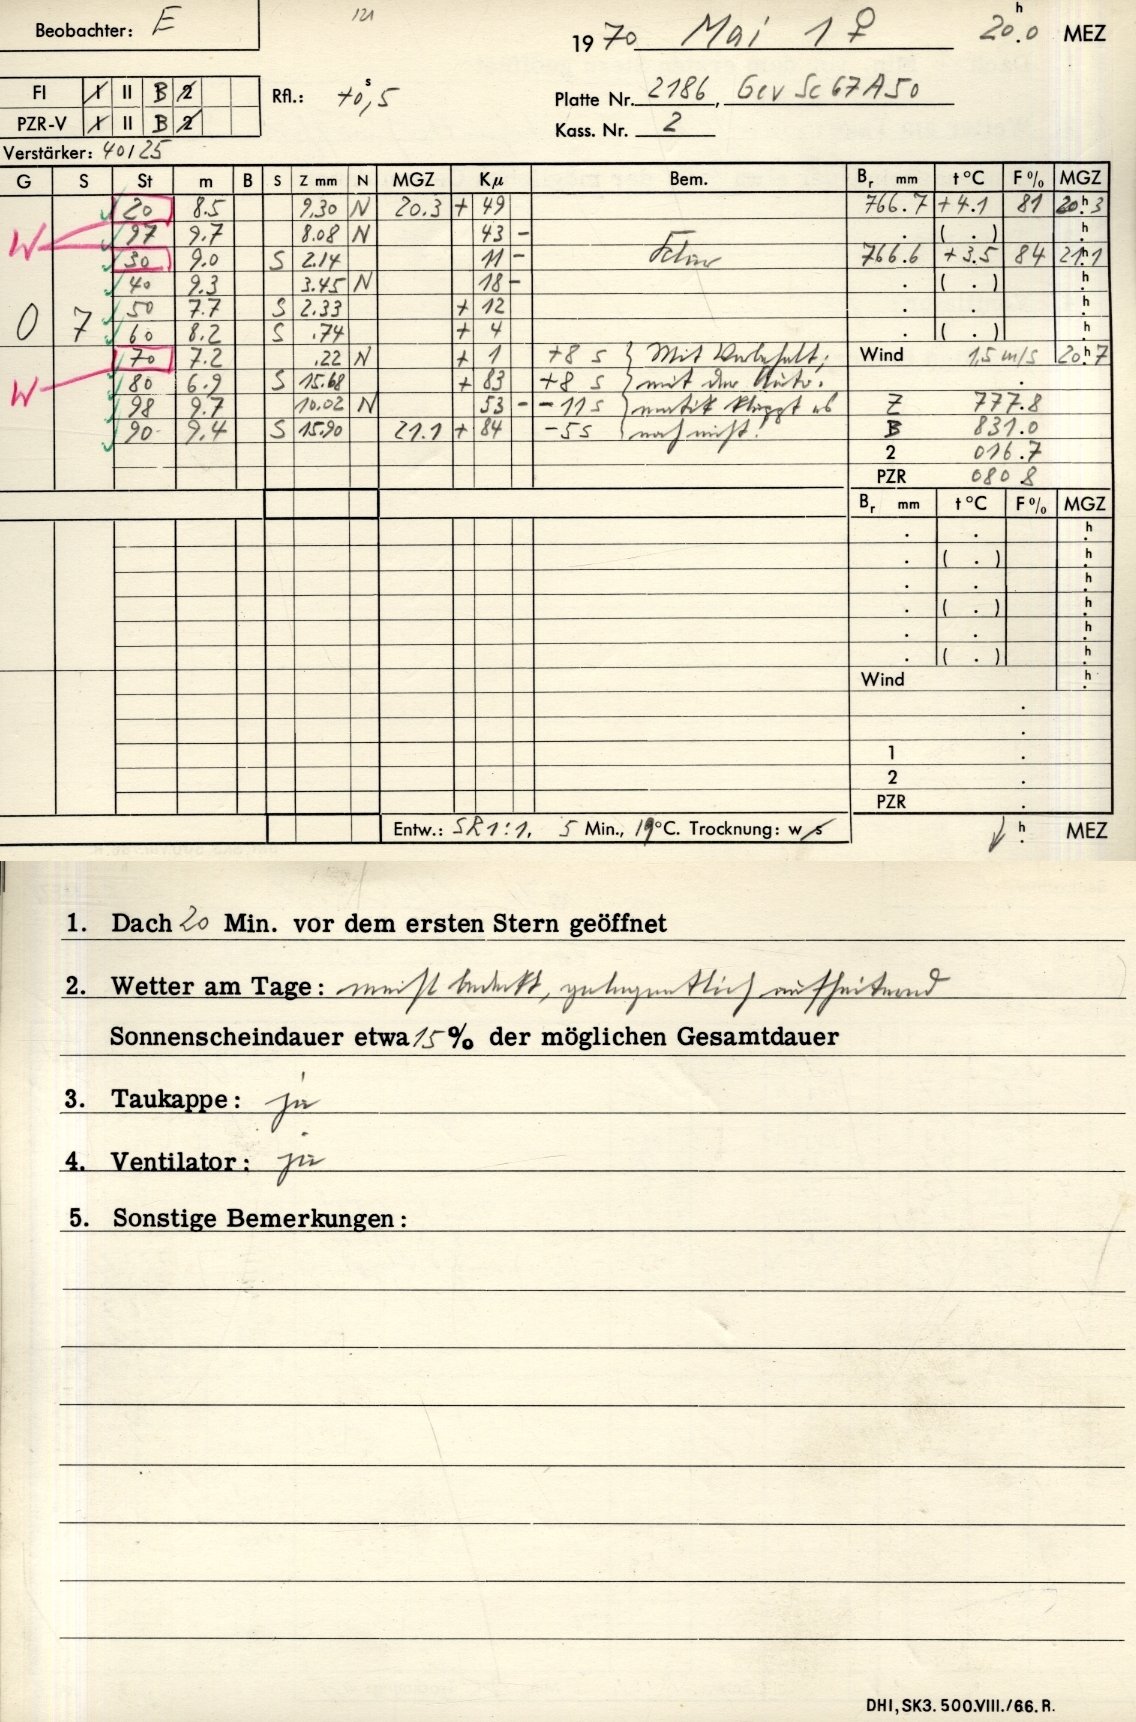 Beobachter: E
121
1970 Mai 1 ♀ 20.0 h MEZ
FI I II B 2
PZR-V I II B 2
Rfl.: +0,5 s
Platte Nr. 2186, Gev Sc 67 A 50
Kass. Nr. 2
Verstärker: 40/25
G S St m B S Z mm N MGZ Kμ Bem. Br mm t °C F % MGZ
20 8.5 9.30 N 20.3 + 49 766.7 +4.1 81 20 h 3
W 97 9.7 8.08 N 43 - . ( . ) h
30 9.0 S 2.14 11 - 766.6 +3.5 84 21 h 1
40 9.3 3.45 N 18 - . ( . ) h
0 7 50 7.7 S 2.33 + 12 . . h
60 8.2 S .74 + 4 . ( . ) h
70 7.2 .22 N + 1 +8 s } Mit Vorbehalt; Wind 1,5 m/s 20 h 7
W 80 6.9 S 15.68 + 83 +8 s } mit der Auto-
98 9.7 10.02 N 53 - -11 s } matik klappt es Z 777.8
90 9.4 S 15.90 21.1 + 84 -5 s } noch nicht! B 831.0
2 016.7
PZR 080 8
Br mm t °C F % MGZ
. . h
. ( . ) h
. . h
. ( . ) h
. . h
. ( . ) h
Wind h
1 .
2 .
PZR .
Entw.: SR 1:1, 5 Min., 19°C. Trocknung: w s h MEZ
1. Dach 20 Min. vor dem ersten Stern geöffnet
2. Wetter am Tage: meist bedeckt, gelegentlich aufheiternd
Sonnenscheindauer etwa 15 % der möglichen Gesamtdauer
3. Taukappe: ja
4. Ventilator: ja
5. Sonstige Bemerkungen:
DHI, SK3. 500.VIII./66. R.